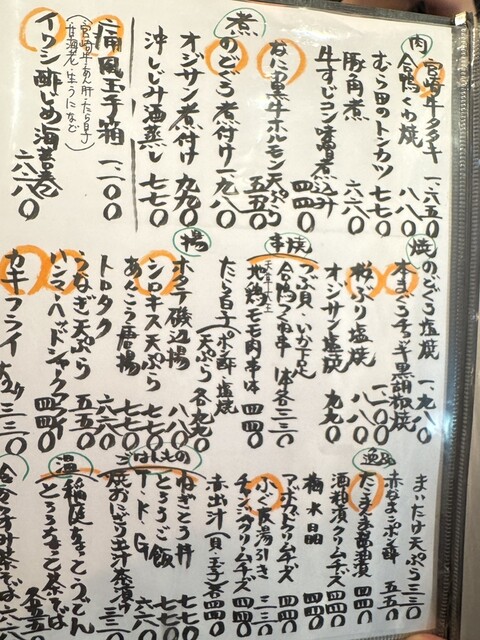 肉
宮崎牛タタキ 一、六五〇
合鴨くわ焼 八八〇
むら田のトンカツ 七七〇
豚角煮 六六〇
牛すじコン味噌煮込み 四四〇
なにわ黒牛ホルモン天ぷら 五五〇
煮
のどぐろ煮付け 一、九八〇
オジサン煮付け 九九〇
沖しじみ酒蒸し 七七〇
痛風玉手箱 一、一〇〇
(宮崎牛あん肝たら白子
甘海老生うになど)
イワシ酢じめ海苔巻 六六〇
焼
のどぐろ塩焼 一、九八〇
本まぐろホホ黒胡椒焼 一、一〇〇
塩焼 八八〇
オジサン塩焼 九九〇
串焼
つぶ貝・いか下足
合鴨つくね串 一本各三三〇
地鶏モモ肉串一本 四四〇
たら白子(ポン酢 塩焼 天ぷら) 各九九〇
揚
ホタテ磯辺揚 八八〇
シロキス天ぷら 七七〇
あんこう唐揚 七七〇
トロタク 六六〇
うなぎ天ぷら 五五〇
ハムヘッドシャークフライ 四四〇
カキフライ 三三〇
まいたけ天ぷら 三三〇
赤なまこポン酢 五五〇
逸品
醤油漬 四四〇
酒粕漬クリームチーズ 四四〇
梅水晶 四四〇
クリームチーズ 四四〇
湯引き 三三〇
チャンジャクリームチーズ 四四〇
赤出汁(貝・玉子) 各四四〇
ごはんもの
ねぎとろ丼 七七〇
とろろご飯 七七〇
T・K・G 六六〇
焼おにぎり出汁茶漬け 三三〇
温
稲庭なっとううどん
とろろなっとう茶そば 各五五〇
茶そば 六六〇